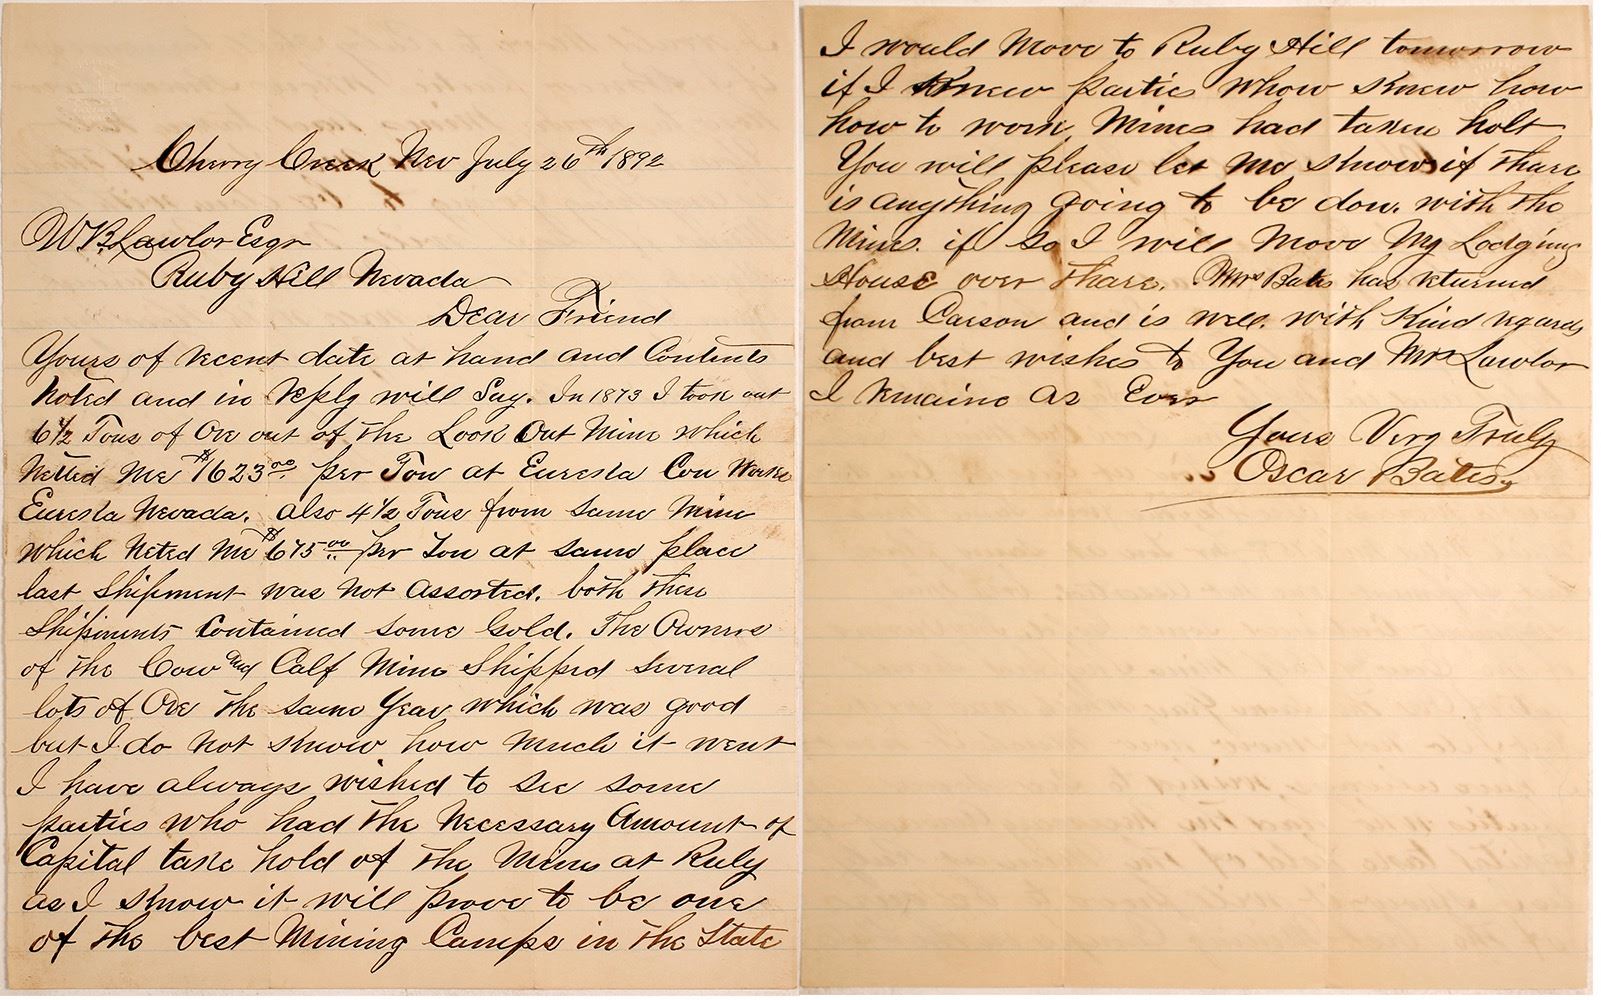 Cherry Creek Nev July 26th 1892
W B Lawlor Esqr
Ruby Hill Nevada
Dear Friend
Yours of recent date at hand and Contents
Noted and in Reply will Say. In 1873 I took out
6½ Tons of Ore out of the Look Out Mine which
Netted Me $1623.00 per Ton at Eureka Con Works
Eureka Nevada. also 4½ Tons from same Mine
which Neted Me $675.00 per Ton at same place
last Shipment was not assorted. both these
Shipments Contained some Gold. The Owners
of the Cow and Calf Mine Shipped several
lots of Ore the same Year which was good
but I do not know how much it went
I have always wished to see some
parties who had the Necessary Amount of
Capital take hold of the Mines at Ruby
as I know it will prove to be one
of the best Mining Camps in the State
I would Move to Ruby Hill tomorrow
if I knew parties whow knew how
how to work Mines had taken holt
You will please let me know if thare
is anything going to be don. with the
Mines. if so I will Move My Lodging
House over thare. Mrs Bates has returned
from Carson and is well. with Kind regards
and best wishes to You and Mrs Lawlor
I remaine as Ever
Yours Very Truly
Oscar Bates.